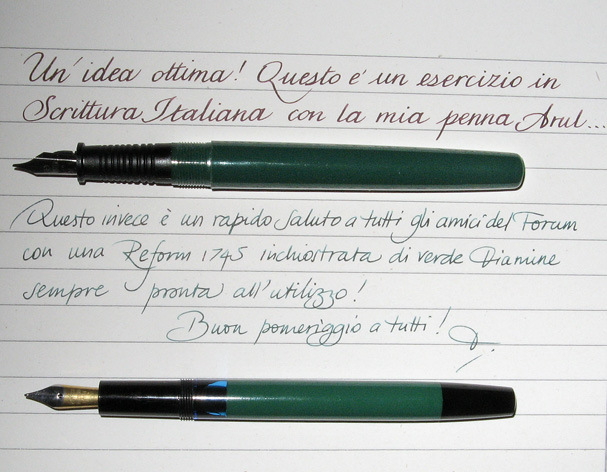 Un' idea ottima! Questo e' un esercizio in
Scrittura Italiana con la mia penna Arul...
Questo invece è un rapido saluto a tutti gli amici del Forum
con una Reform 1745 inchiostrata di verde Diamine
sempre pronta all'utilizzo!
Buon pomeriggio a tutti!